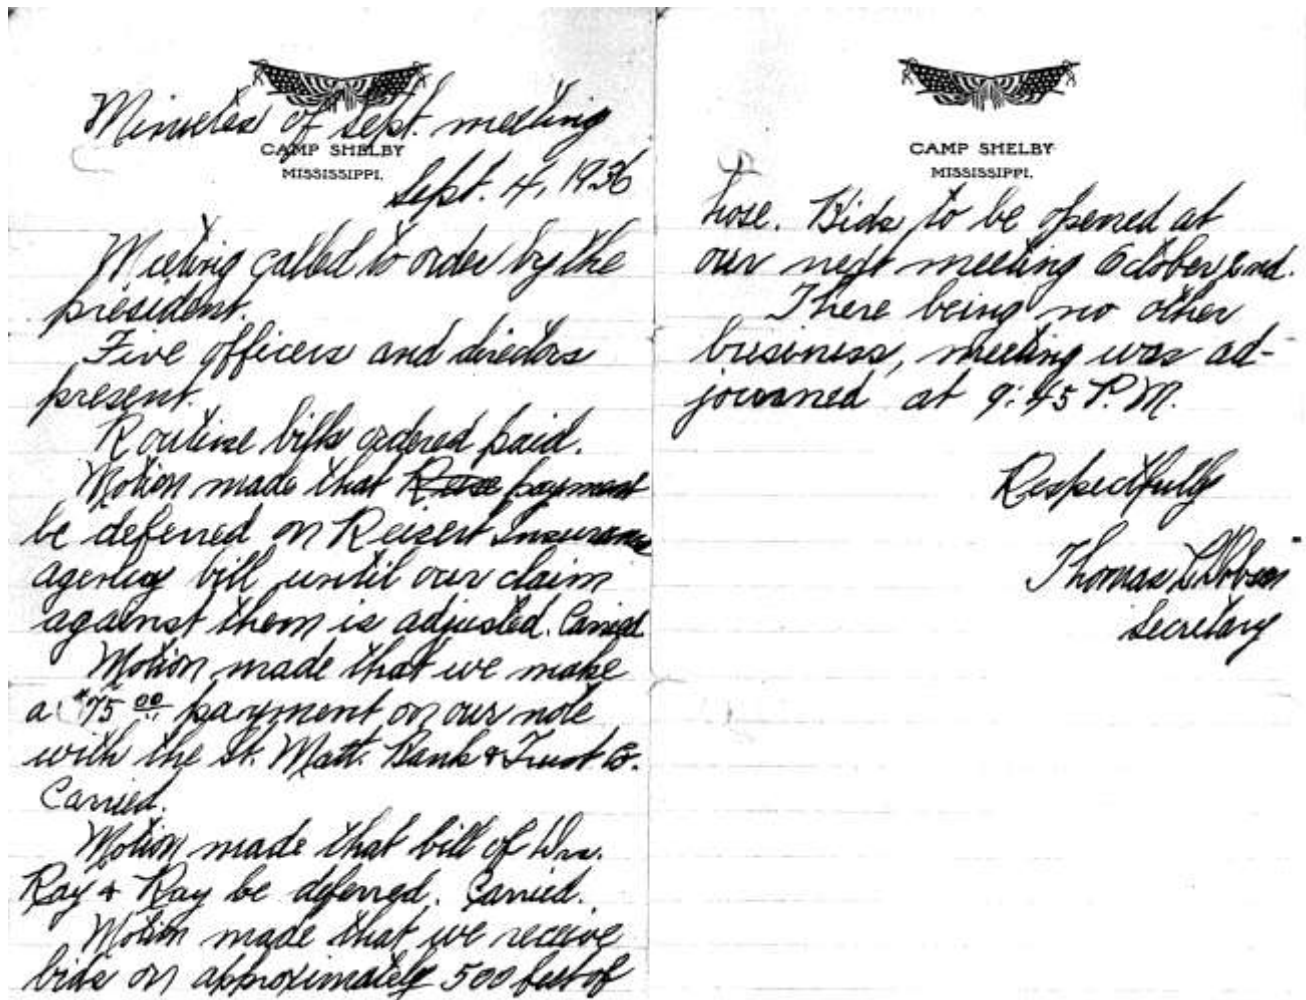 Minutes of Sept. meeting
CAMP SHELBY
MISSISSIPPI.
Sept. 4, 1936
Meeting called to order by the
president.
Five officers and directors
present.
Routine bills ordered paid.
Motion made that payment
be deferred on Reisert Insurance
agency bill until our claim
against them is adjusted. Carried
Motion made that we make
a $75 00 payment on our note
with the St. Matt. Bank & Trust Co.
Carried.
Motion made that bill of Drs.
Ray & Ray be deferred. Carried.
Motion made that we receive
bids on approximately 500 feet of
CAMP SHELBY
MISSISSIPPI.
hose. Bids to be opened at
our next meeting October 2nd.
There being no other
business, meeting was ad-
journed at 9:45 P.M.
Respectfully
Thomas Dobson
Secretary